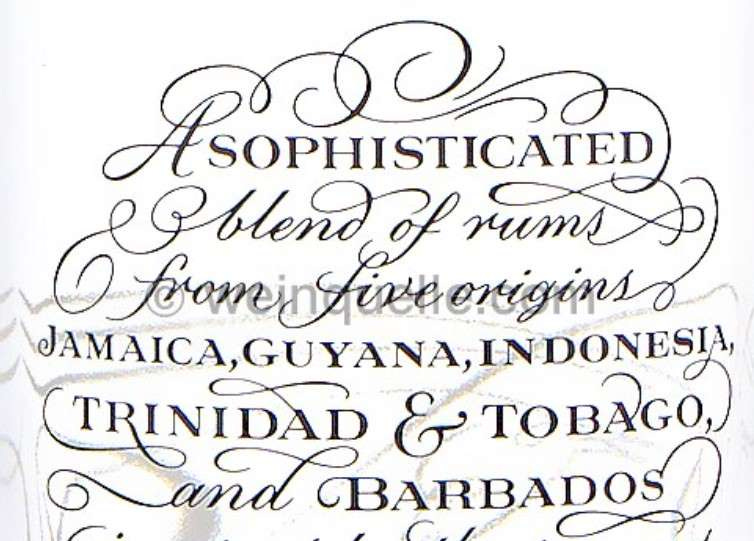 A SOPHISTICATED
blend of rums
from five origins
© weinquelle.com
JAMAICA, GUYANA, INDONESIA,
TRINIDAD & TOBAGO,
and BARBADOS